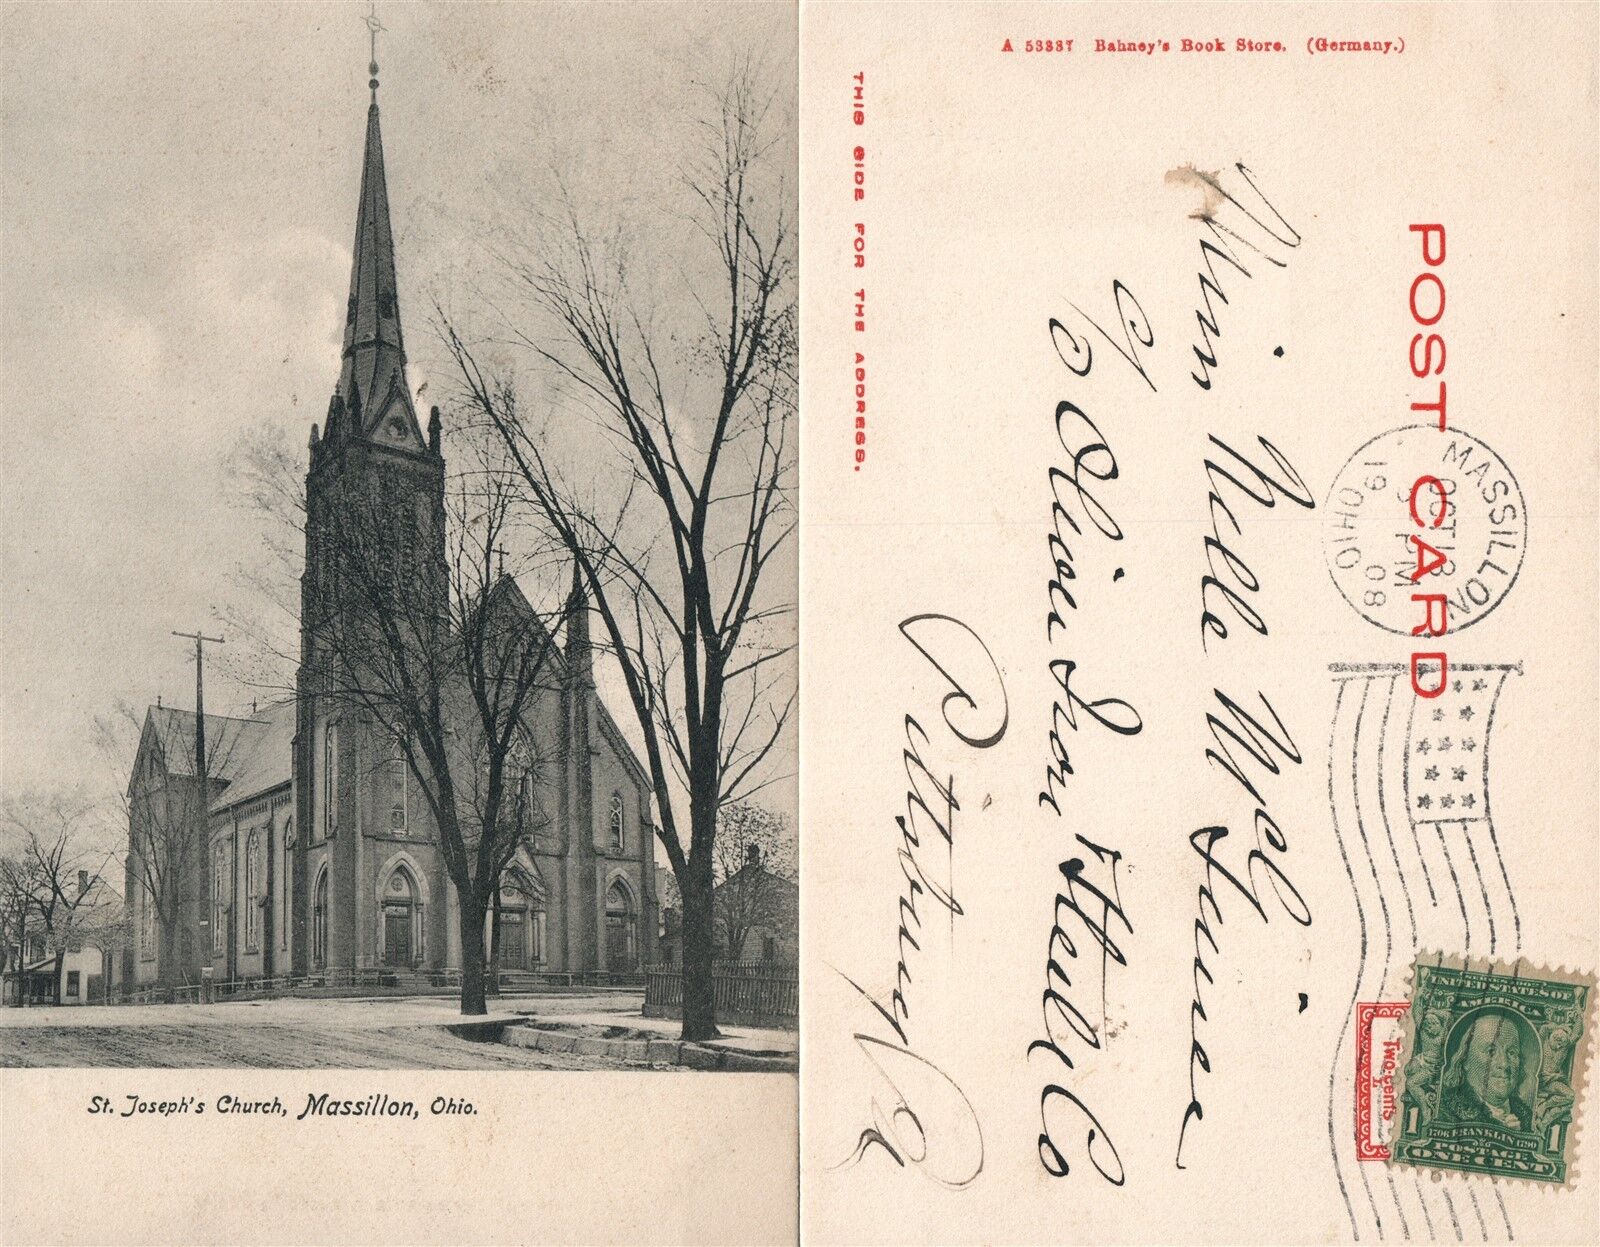 St. Joseph's Church, Massillon, Ohio.
A 53337 Bahney's Book Store. (Germany.)
THIS SIDE FOR THE ADDRESS.
POST CARD
MASSILLON
OCT 13
PM
19 08
OHIO
Two-cents
SERIES 1902
UNITED STATES OF
AMERICA
1706 FRANKLIN 1790
POSTAGE
1 ONE CENT 1
Miss Nelle
c/o Oliver Iron & Steel Co
Pittsburg Pa